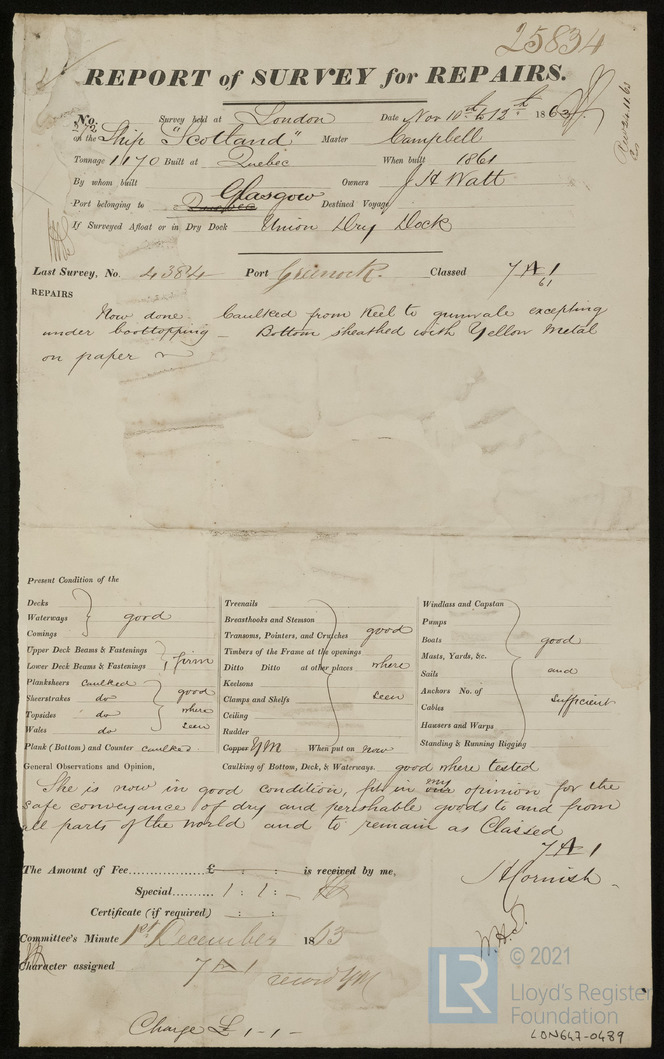 25834
REPORT of SURVEY for REPAIRS.
No. 272 Survey held at London Date Nov 10th to 12th 1863
on the Ship "Scotland" Master Campbell
Tonnage 1170 Built at Quebec When built 1861
By whom built Owners J H Watt
Port belonging to Glasgow Destined Voyage
If Surveyed Afloat or in Dry Dock Union Dry Dock
Last Survey, No. 4384 Port Greenock. Classed 7 A 1
61
REPAIRS
Now done. Caulked from Keel to gunwale excepting
under boottopping – Bottom sheathed with Yellow Metal
on paper
Present Condition of the
Decks
Waterways good
Comings
Upper Deck Beams & Fastenings
Lower Deck Beams & Fastenings firm
Planksheers caulked
Sheerstrakes do good
Topsides do where
Wales do seen
Plank (Bottom) and Counter caulked
Treenails
Breasthooks and Stemson
Transoms, Pointers, and Crutches good
Timbers of the Frame at the openings
Ditto Ditto at other places where
Keelsons
Clamps and Shelfs seen
Ceiling
Rudder
Copper YM When put on now
Windlass and Capstan
Pumps
Boats good
Masts, Yards, &c.
Sails and
Anchors No. of
Cables sufficient
Hausers and Warps
Standing & Running Rigging
General Observations and Opinion, Caulking of Bottom, Deck, & Waterways. good where tested
She is now in good condition, fit in my our opinion for the
safe conveyance of dry and perishable goods to and from
all parts of the world and to remain as Classed
7 A 1
The Amount of Fee £ : : is received by me,
Special 1 : 1 : –
Certificate (if required) : :
J Hornish
Committee's Minute 1st December 1863
Character assigned 7 A 1
record YM
W.H.S.
Charge £ 1 - 1 -
© 2021
LR
Lloyd's Register
Foundation
LON647-0489